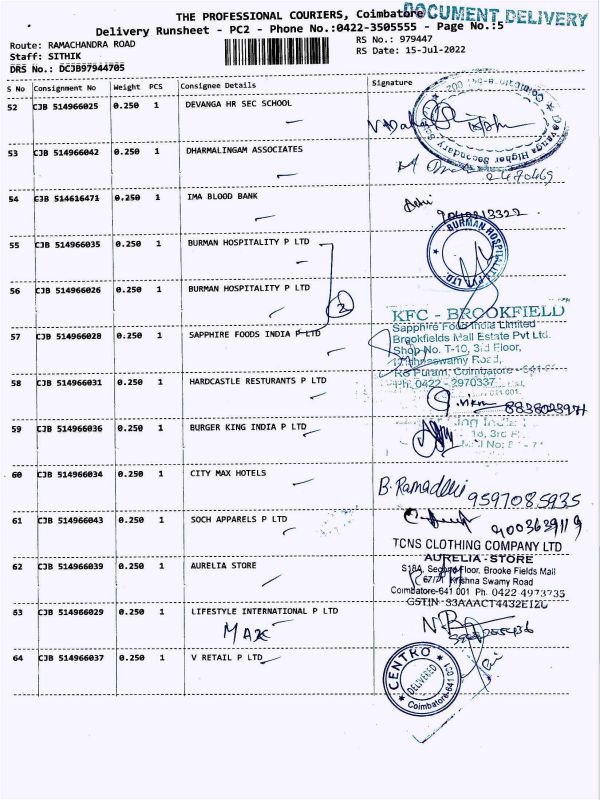 THE PROFESSIONAL COURIERS, Coimbatore
DOCUMENT DELIVERY
Delivery Runsheet - PC2 - Phone No.:0422-3505555 - Page No.:5
Route: RAMACHANDRA ROAD
RS No.: 979447
Staff: SITHIK
RS Date: 15-Jul-2022
DRS No.: DCJB97944705
S No Consignment No Weight PCS Consignee Details Signature
52 CJB 514966025 0.250 1 DEVANGA HR SEC SCHOOL
53 CJB 514966042 0.250 1 DHARMALINGAM ASSOCIATES
2470469
54 CJB 514616471 0.250 1 IMA BLOOD BANK
9040213322
55 CJB 514966035 0.250 1 BURMAN HOSPITALITY P LTD
BURMAN HOSPITALITY PVT. LTD.
56 CJB 514966026 0.250 1 BURMAN HOSPITALITY P LTD
2
KFC - BROOKFIELD
57 CJB 514966028 0.250 1 SAPPHIRE FOODS INDIA P LTD
Sapphire Food India Limited
Brookfields Mall Estate Pvt Ltd.
Shop No. T-10, 3rd Floor,
Krishnaswamy Road,
RS Puram, Coimbatore - 641 001
Ph: 0422 - 2970337
58 CJB 514966031 0.250 1 HARDCASTLE RESTURANTS P LTD
8838023971
59 CJB 514966036 0.250 1 BURGER KING INDIA P LTD
60 CJB 514966034 0.250 1 CITY MAX HOTELS
B. Ramadevi 9597085935
61 CJB 514966043 0.250 1 SOCH APPARELS P LTD
9003639119
TCNS CLOTHING COMPANY LTD
AURELIA - STORE
62 CJB 514966039 0.250 1 AURELIA STORE
S18A, Second Floor, Brooke Fields Mall
67/71 Krishna Swamy Road
Coimbatore-641 001 Ph. 0422 4973735
GSTIN 33AAACT4432E1ZG
63 CJB 514966029 0.250 1 LIFESTYLE INTERNATIONAL P LTD
MAX
64 CJB 514966037 0.250 1 V RETAIL P LTD
CENTRO
DELIVERED
Coimbatore-641 001